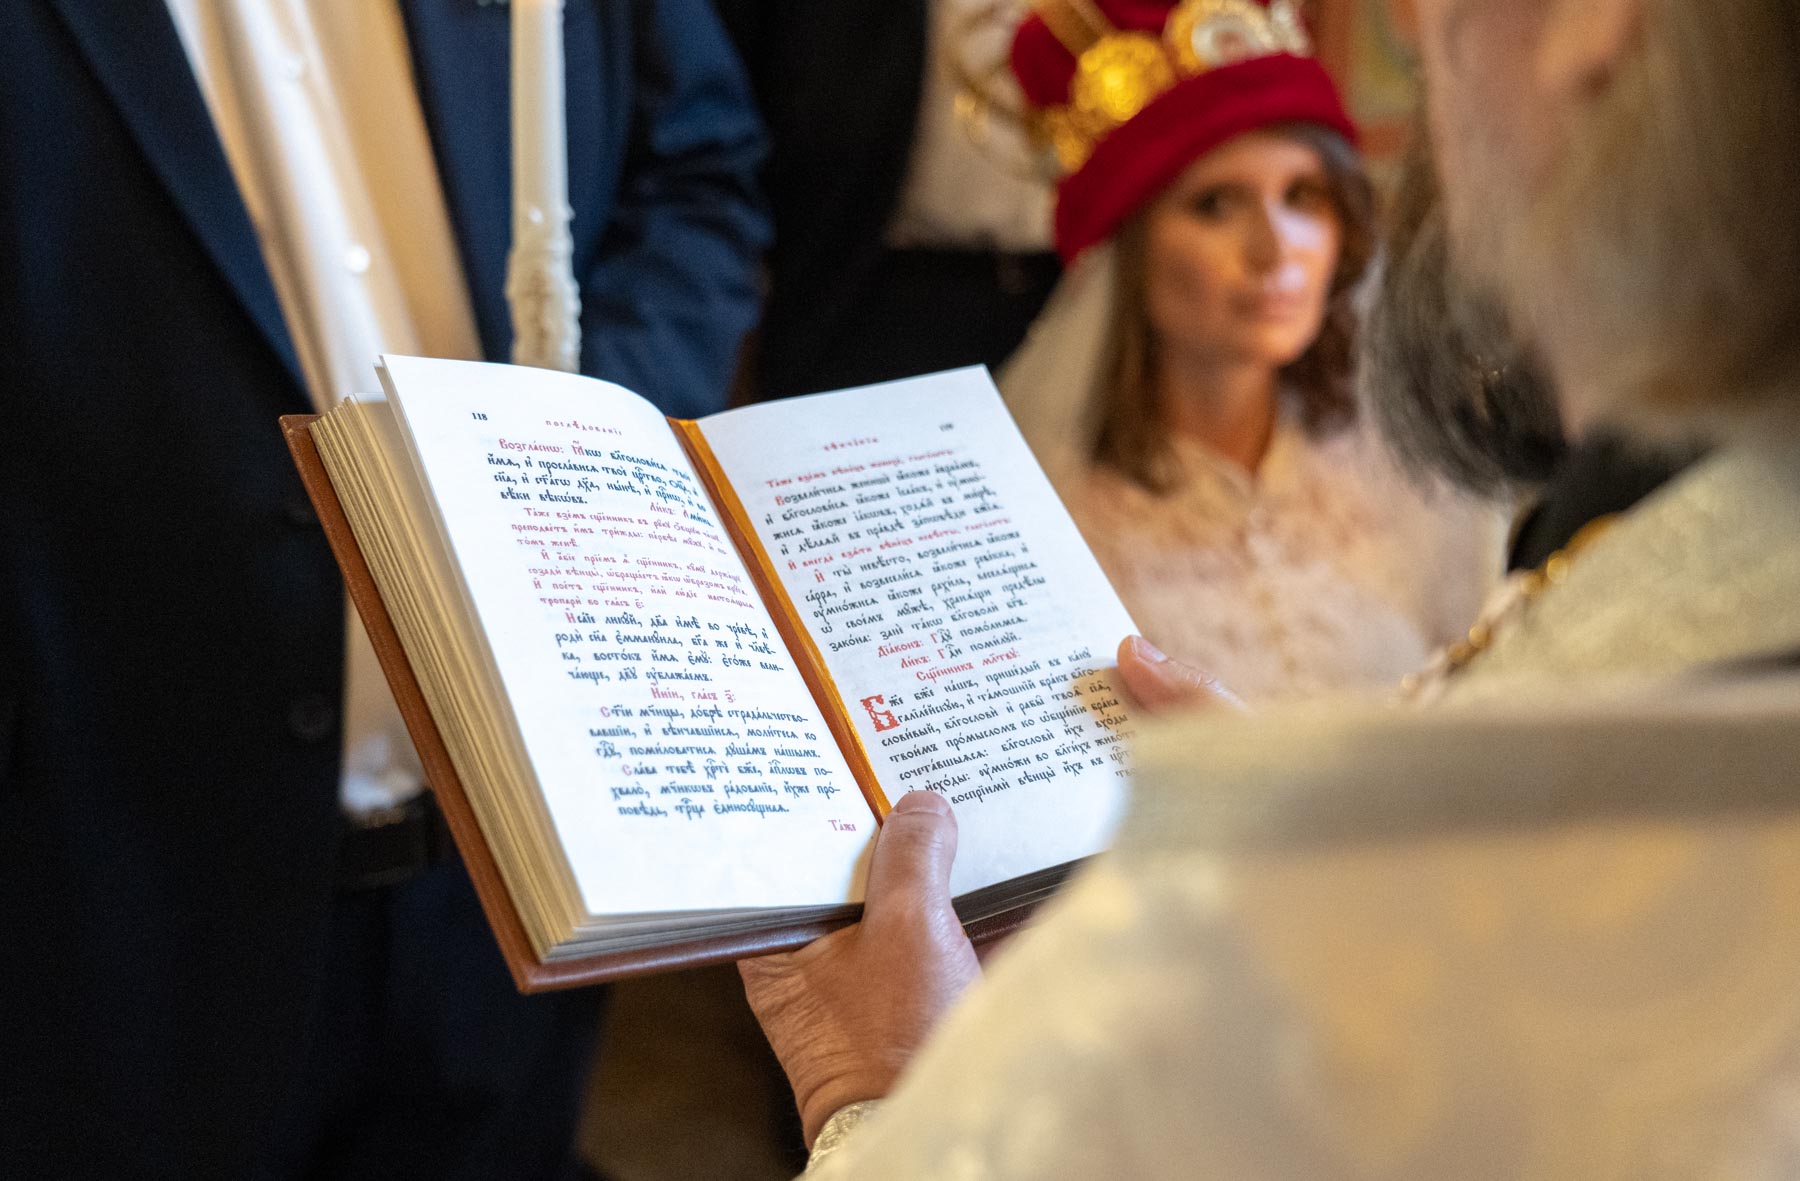 118
ПОСЛѢДОВАНІЕ
Возгла́сиш: Ꙗ҆́кѡ бл҃гослови́сѧ твоѐ
и҆́мѧ, и҆ просла́висѧ твоѐ цр҃тво, Ѻ҆ц҃а̀, и҆
сн҃а, и҆ ст҃а́гѡ дх҃а, ны́нѣ, и҆ при́снѡ, и҆ во
вѣ́ки вѣкѡ́въ. Ли́къ: А҆ми́нь.
Та́же взе́мъ свяще́нникъ въ рꙋ́кꙋ
преподае́тъ и҆̀мъ три́жды: пе́рвѣе мꙋ́жꙋ, и҆ по
то́мъ женѣ̀.
И҆ а҆́бїе прїе́мъ ѧ҆̀ сщ҃е́нникъ,
созадѝ вѣнцы̀, ѡ҆браща́етъ ꙗ҆́кѡ ѡ҆́бразомъ крꙋ́га.
И҆ пое́тъ сщ҃е́нникъ, и҆лѝ лю́дїе настоѧ́щыѧ
тропарѝ во гла́съ є҃:
И҆са́їе ликꙋ́й, дв҃а и҆мѣ̀ во чре́вѣ, и҆
родѝ сн҃а є҆мманꙋ́ила, бг҃а же и҆ чл҃вѣ́-
ка, восто́къ и҆́мѧ є҆мꙋ̀: є҆го́же вели-
ча́юще, дв҃ꙋ ᲂу҆блажа́емъ.
И҆́нїи, гла́съ з҃:
Ст҃і́и мч҃нцы, до́брѣ страда́льчество-
вавшїи, и҆ вѣнча́вшїисѧ, моли́тесѧ ко
гд҃ꙋ, поми́ловатисѧ дꙋша́мъ на́шымъ.
Сла́ва тебѣ̀ хр҃тѐ бж҃е, а҆пⷭ҇лѡвъ по-
хвало̀, мч҃никѡвъ ра́дованїе, и҆́хже про́-
повѣдь, трⷪ҇ца є҆диносꙋ́щнаѧ.
Та́же
ВѢНЧА́НІѦ
Та́же взе́мъ вѣне́цъ жениха̀, глаго́летъ:
Возвели́чисѧ женишѐ ꙗ҆́коже а҆враа́мъ,
и҆ бл҃гослови́сѧ ꙗ҆́коже і҆саа́къ, и҆ ᲂу҆мно́-
жисѧ ꙗ҆́коже і҆а́кѡвъ, ходѧ́й въ ми́рѣ,
и҆ дѣ́лаѧй въ пра́вдѣ за́пѡвѣди бж҃їѧ.
И҆ внегда̀ взѧ́ти вѣне́цъ невѣ́сты, глаго́летъ:
И҆ ты̀ невѣ́сто, возвели́чисѧ ꙗ҆́коже
са́рра, и҆ возвесели́сѧ ꙗ҆́коже реве́кка, и҆
ᲂу҆мно́жисѧ ꙗ҆́коже рахи́ль, веселѧ́щисѧ
ѡ҆ свое́мъ мꙋ́жѣ, хранѧ́щи предѣ́лы
зако́на: занѐ та́кѡ бл҃говолѝ бг҃ъ.
Дїа́конъ: Гд҃ꙋ помо́лимсѧ.
Ли́къ: Гд҃и поми́лꙋй.
Сщ҃е́нникъ мл҃твꙋ:
Бж҃е бж҃е на́шъ, прише́дый въ ка́нꙋ
галїле́йскꙋю, и҆ та́мошнїй бра́къ бл҃го-
слови́вый, бл҃гословѝ и҆ рабы̑ твоѧ̑ сїѧ̑,
твои́мъ про́мысломъ ко ѻ҆бще́нїю бра́ка
сочета́вшыѧсѧ: бл҃гословѝ и҆́хъ вхѡ́ды
и҆ и҆схѡ́ды: ᲂу҆мно́жи во бл҃ги́хъ живо́тъ
воспрїимѝ вѣнцы̀ и҆́хъ въ цр҃тві